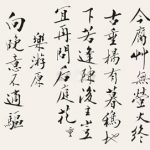 今腐草無螢火終
古垂楊有暮鴉地
下若逢陳後主豈
宜再問后庭花重
樂游原
向晚意不適驅